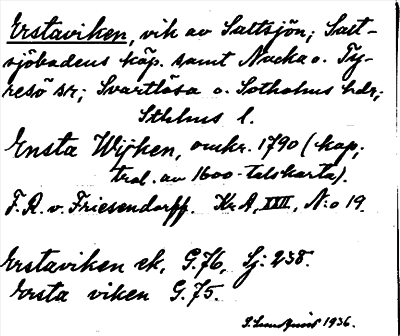 Erstaviken, vik av Saltsjön; Salt-
sjöbadens köp. samt Nacka o. Ty-
resö sr; Svartlösa o. Sotholms hdr;
Sthlms l.
Ensta Wijken, omkr. 1790 (kop;
trol. av 1600-talskarta).
F. A. v. Friesendorff. Kr A, XXII, N:o 19.
Erstaviken ek, G. 76, Sj: 238.
Ersta viken G. 75.
1936.